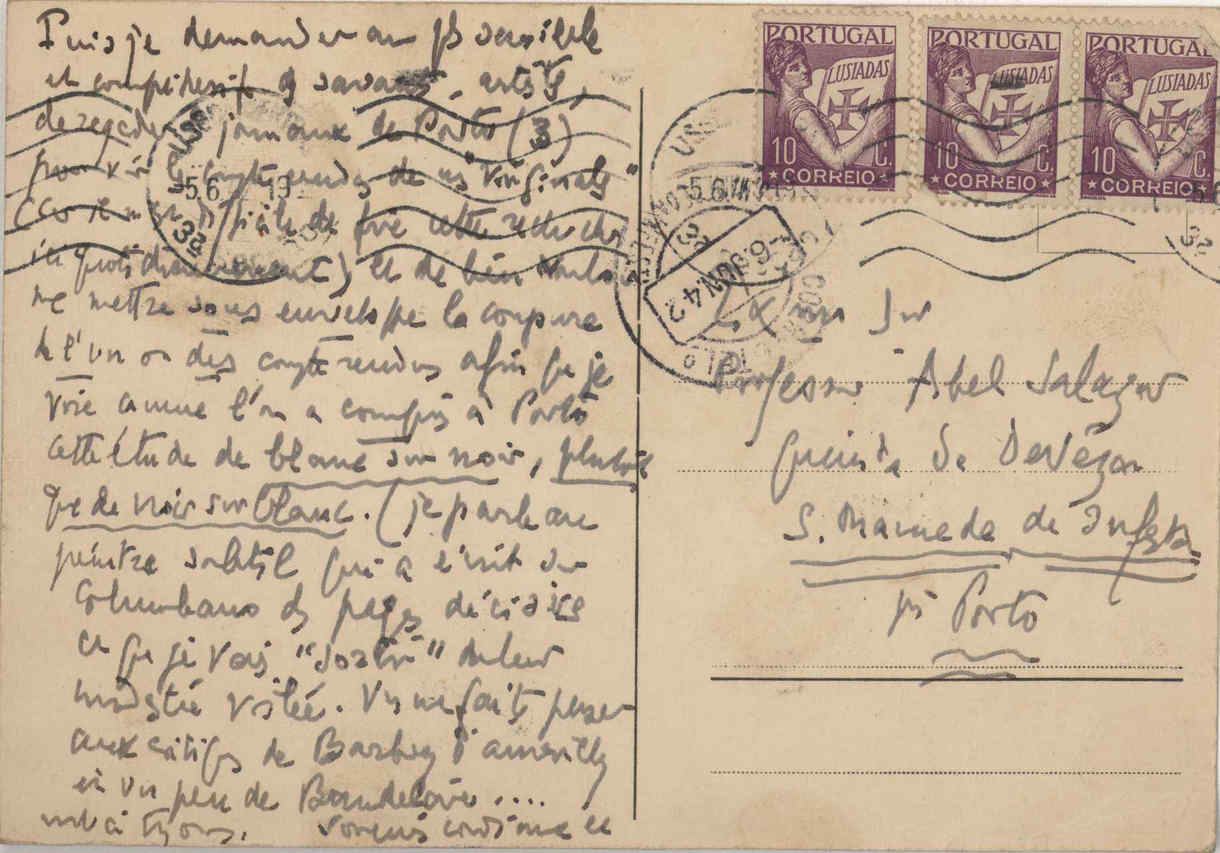 Puis je demander au plus sensible
et compréhensif des savants, artiste,
de regarder journaux de Porto (3)
pour voir comptes rendus de nos "originals"
difficile de faire cette recherche
ici quotidiennement) et de bien vouloir
me mettre sous enveloppe la coupure
de l'un ou des comptes rendus afin que je
voie comme l'on a compris à Porto
cette étude de blanc sur noir, plutôt
que de noir sur blanc. (je parle au
peintre subtil qui a écrit sur
Columbano des pages décisives
et que je vais "sortir" de leur
modestie voilée. Vs me faites penser
aux critiques de Barbey d'aurevilly
et un peu de Baudelaire ....
PORTUGAL
LUSIADAS
10 C.
CORREIO
PORTUGAL
LUSIADAS
10 C.
CORREIO
PORTUGAL
LUSIADAS
10 C.
CORREIO
6.JUN.42
Professeur Abel Salazar
Quinta da
S. Mamede de Infesta
Porto